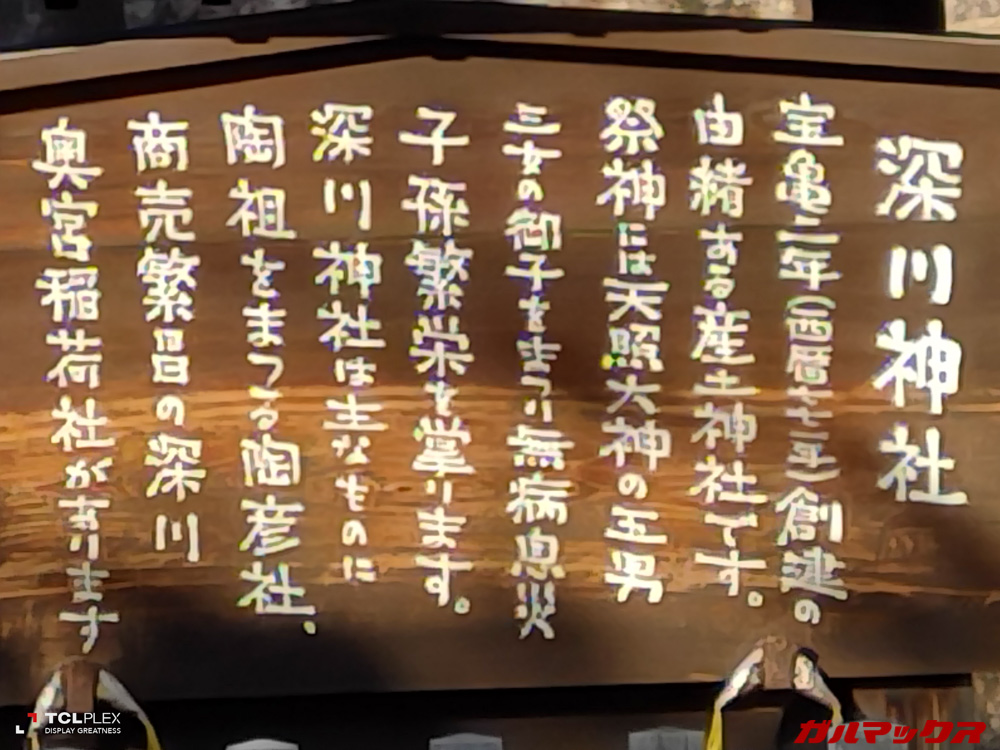 深川神社
宝亀二年(西暦七七一年)創建の
由緒ある産土神社です。
祭神には天照大神の五男
三女の御子をまつり無病息災
子孫繁栄を掌ります。
深川神社は主なものに
陶祖をまつる陶彦社、
商売繁昌の深川
奥宮稲荷社があります
TCLPLEX
DISPLAY GREATNESS
ガルマックス